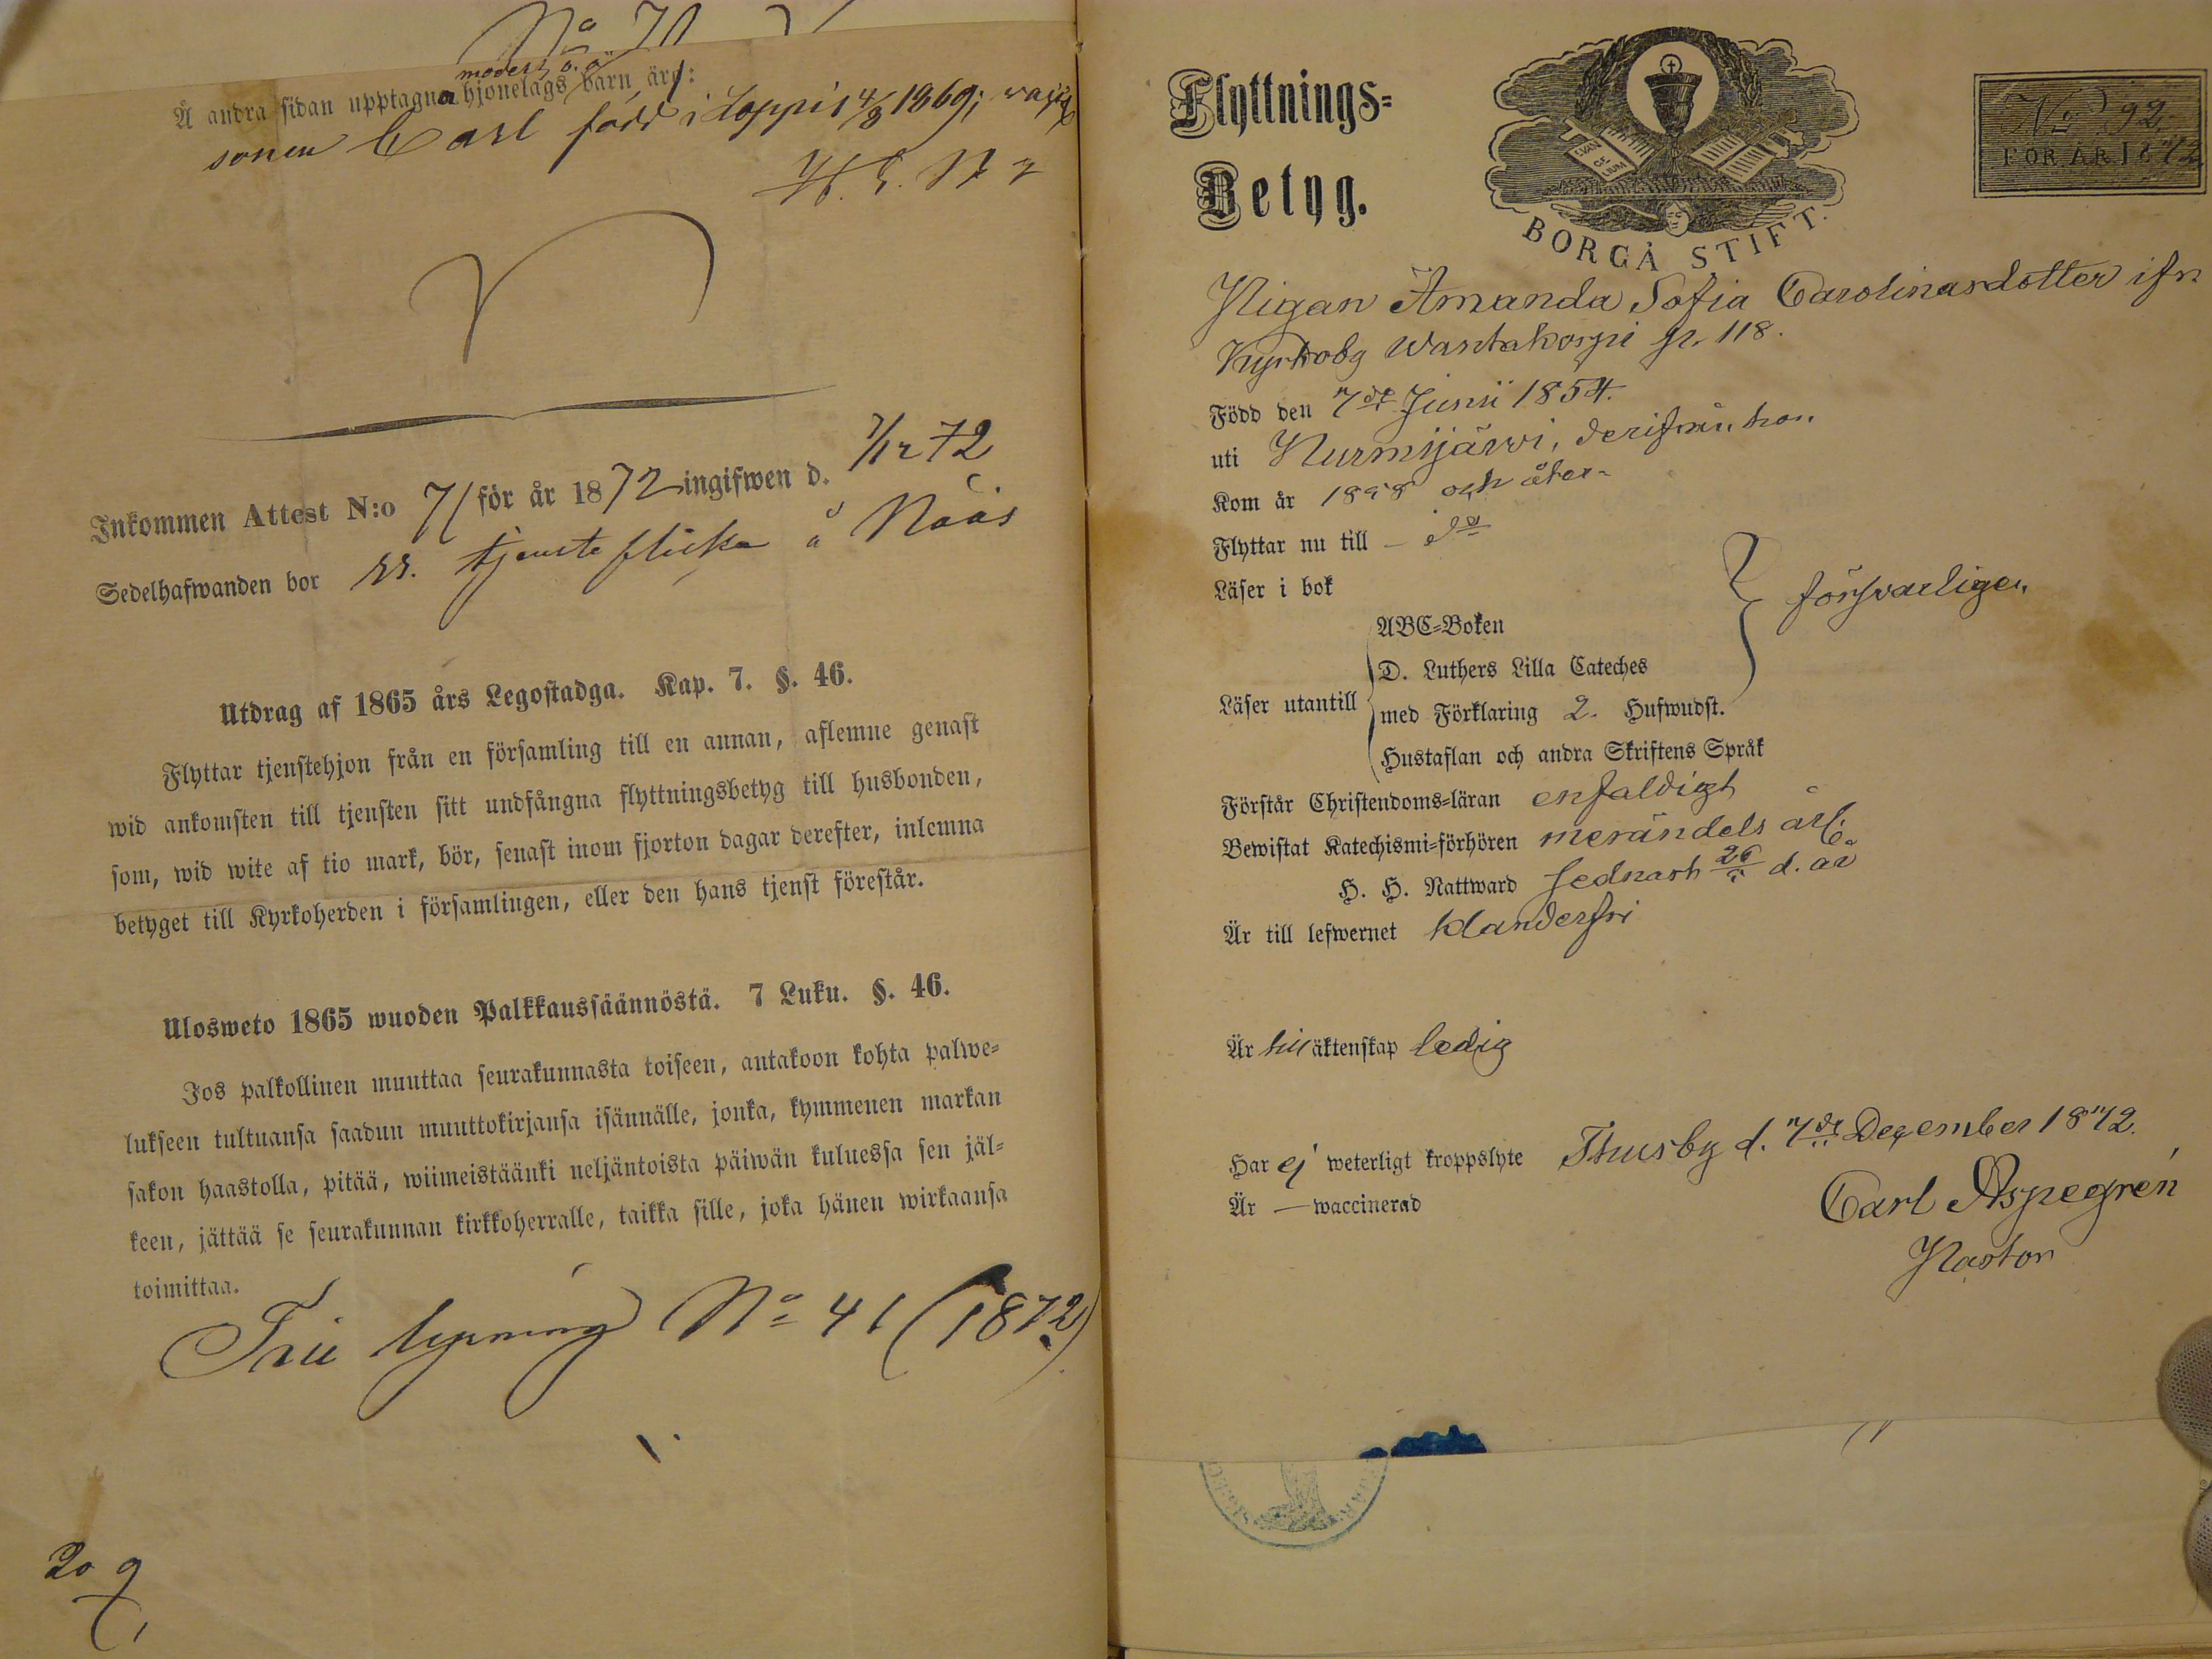 N:o 71
moders o. ä
Å andra sidan upptagna hjonelags barn, äro:
sonen Carl född i Loppis 4/8 1869;
Inkommen Attest N:o 71 för år 1872 ingifwen d. 7/12 72
Sedelhafwanden bor ss. tjensteflicka å Nääs
Utdrag af 1865 års Legostadga. Kap. 7. §. 46.
Flyttar tjenstehjon från en församling till en annan, aflemne genast
wid ankomsten till tjensten sitt undfångna flyttningsbetyg till husbonden,
som, wid wite af tio mark, bör, senast inom fjorton dagar derefter, inlemna
betyget till Kyrkoherden i församlingen, eller den hans tjenst förestår.
Ulosweto 1865 wuoden Palkkaussäännöstä. 7 Luku. §. 46.
Jos palkollinen muuttaa seurakunnasta toiseen, antakoon kohta palwe-
lukseen tultuansa saadun muuttokirjansa isännälle, jonka, kymmenen markan
sakon haastolla, pitää, wiimeistäänki neljäntoista päiwän kuluessa sen jäl-
keen, jättää se seurakunnan kirkkoherralle, taikka sille, joka hänen wirkaansa
toimittaa.
Fri lysning N:o 41 (1872)
20
Flyttnings-
Betyg.
EVAN
GE
LIUM
BORGÅ STIFT.
No 92
FÖR ÅR 1872
Pigan Amanda Sofia Carolinasdotter ifrn
Kyrkoby Wantakorpi p. 118.
Född den 7de Junii 1854.
uti Nurmijärvi, derifrån hon
Kom år 1858 och åter-
Flyttar nu till - do
Läser i bok
försvarligen
ABC-Boken
D. Luthers Lilla Cateches
Läser utantill
med Förklaring 2. Hufwudst.
Hustaflan och andra Skriftens Språk
Förstår Christendoms-läran enfaldigt
Bewistat Katechismi-förhören merändels årl.
H. H. Nattward sednast 26 d. år
Är till lefwernet klanderfri
Är till äktenskap ledig
Har ej weterligt kroppslyte Thusby d. 7de December 1872.
Är — waccinerad
Carl Aspegrén
Pastor